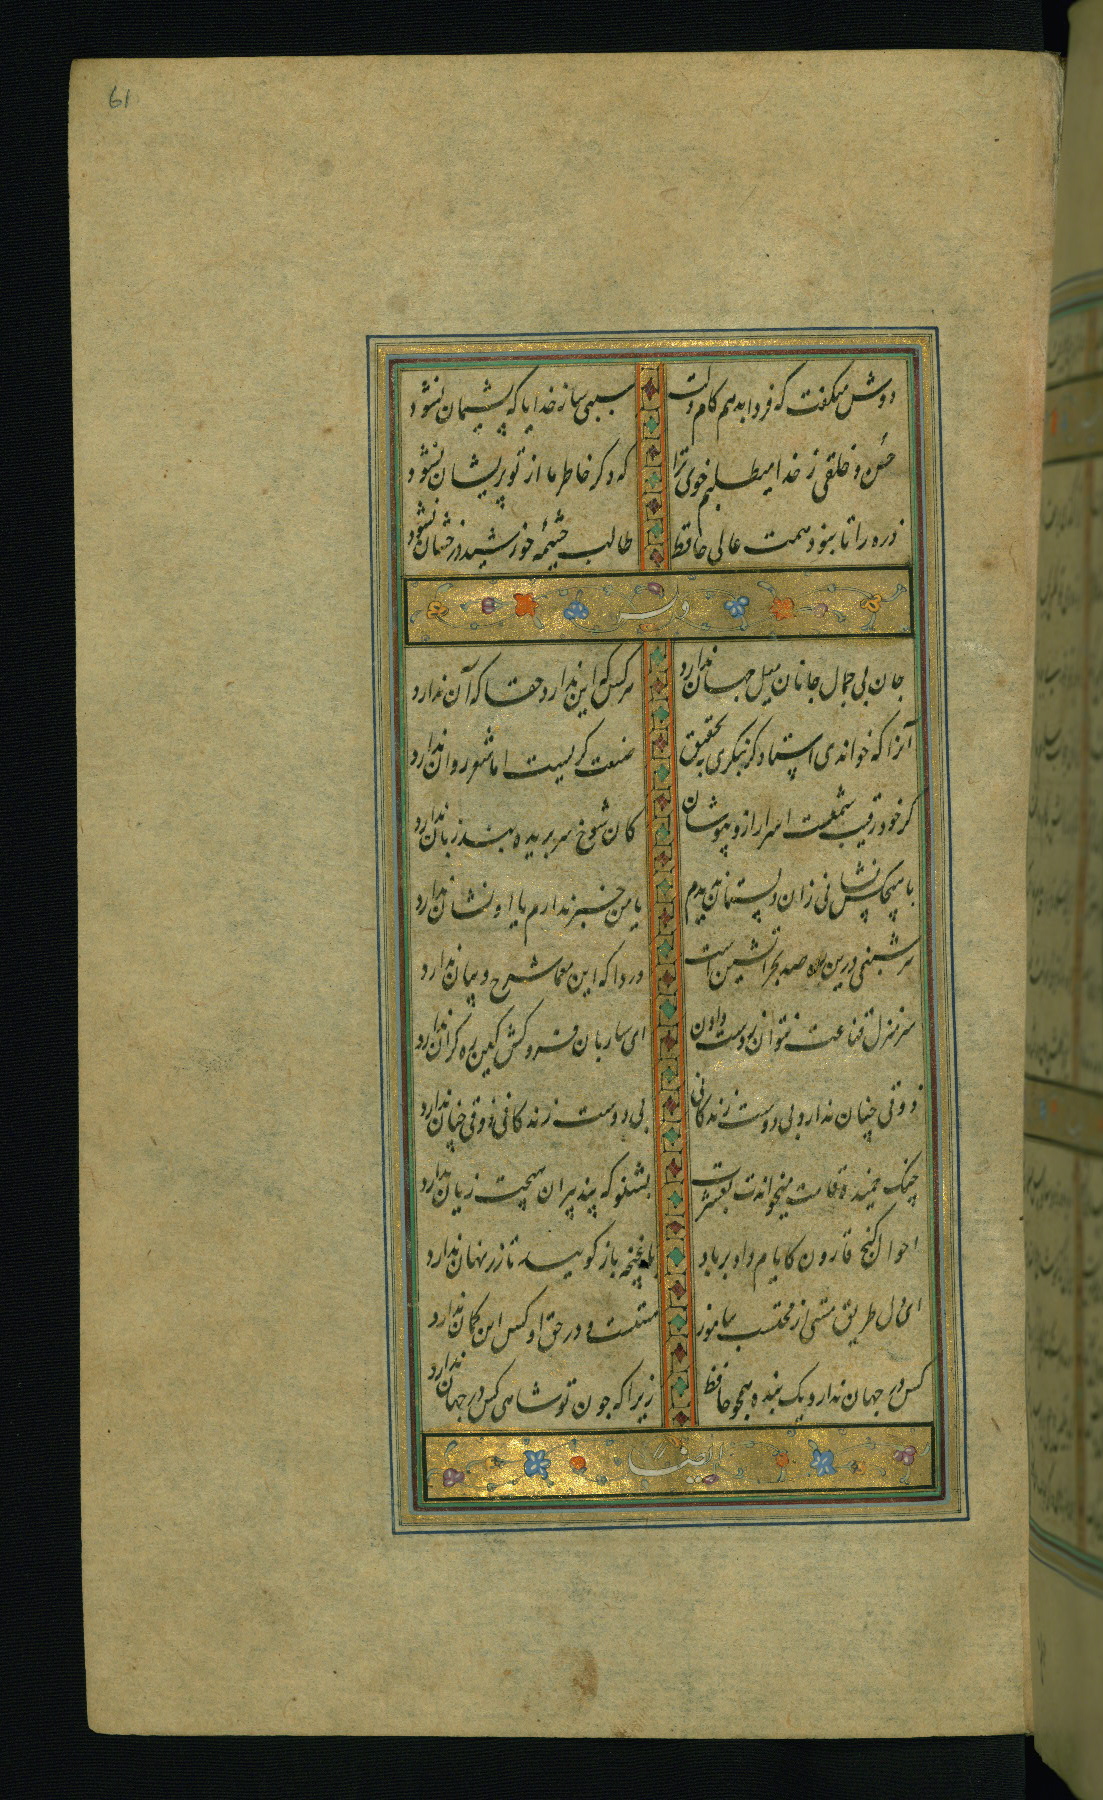 61
دوش میکفت که فردا بدهم کام دلت سببی ساز خدایا که پشیمان نشود
حسن و خلقی ز خدا میطلبم خوی ترا که دکر خاطر ما از تو پریشان نشود
ذره را تا نبود همت عالی حافظ طالب چشمه خورشید درخشان نشود
وله
جان بی جمال جانان میل جهان ندارد هر کس که این ندارد حقا که آن ندارد
آنرا که خواندی استاد کر بنکری به تحقیق صنعت کریست اما شعر روان ندارد
کر خود رقیب شمعست اسرار ازو بپوشان کان شوخ سر بریده بند زبان ندارد
با هیچکس نشانی زان دلستان ندیدم یا من خبر ندارم یا او نشان ندارد
هر شبنمی درین ره صد بحر آتشین است دردا که این معما شرح و بیان ندارد
سرمنزل قناعت نتوان ز دست دادن ای ساربان فروکش کین ره کران ندارد
ذوقی چنان ندارد بی دوست زندکانی بی دوست زندکانی ذوقی چنان ندارد
چنک خمیده قامت میخواندت بعشرت بشنو که پند پیران هیچت زیان ندارد
احوال کنج قارون کایام داد بر باد با غنچه باز کویید تا زر نهان ندارد
ای دل طریق مستی از محتسب بیاموز مستست و در حق او کس این کمان ندارد
کس در جهان ندارد یک بنده همچو حافظ زیرا که چون تو شاهی کس در جهان ندارد
ایضا